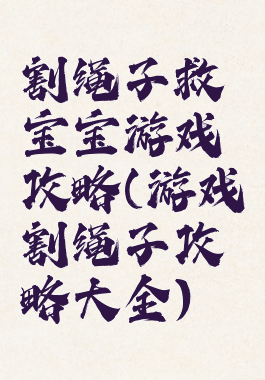 割绳子救
宝宝游戏
攻略(游戏
割绳子攻
略大全)